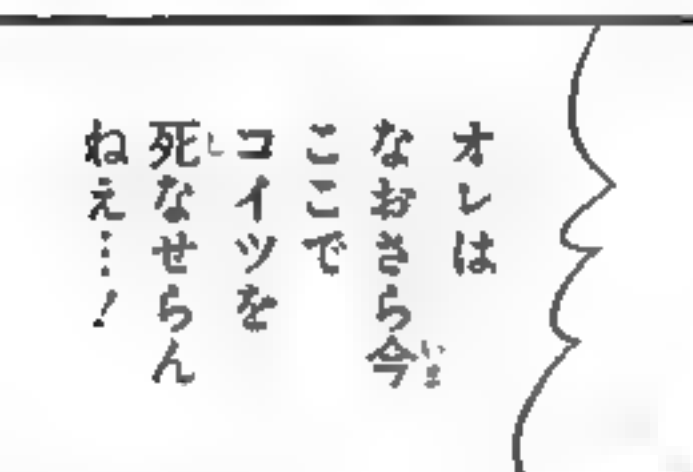 オレは
なおさら今
ここで
コイツを
死なせらん
ねえ…!